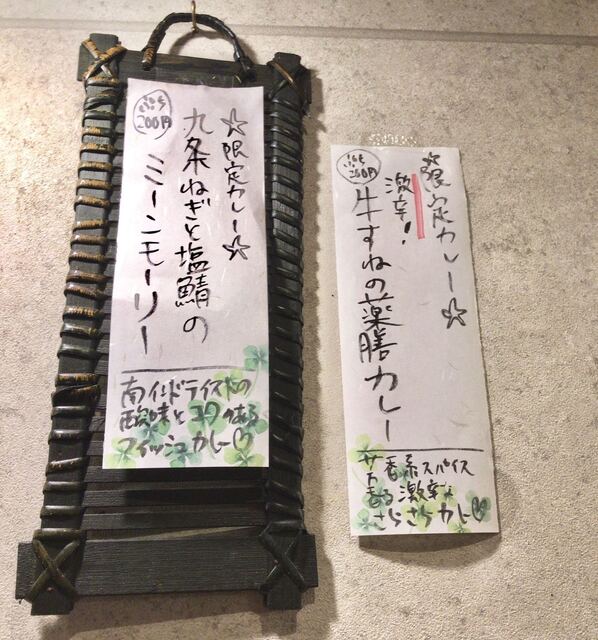 ☆限定カレー☆
九条ねぎと塩鯖の
ミーンモーリー
ぷち
200円
南インドテイストの
酸味とコクのある
フィッシュカレー♡
☆限定カレー☆
激辛!
牛すねの薬膳カレー
ぷち
200円
系スパイス
香る激辛な
さらさらカレー♡